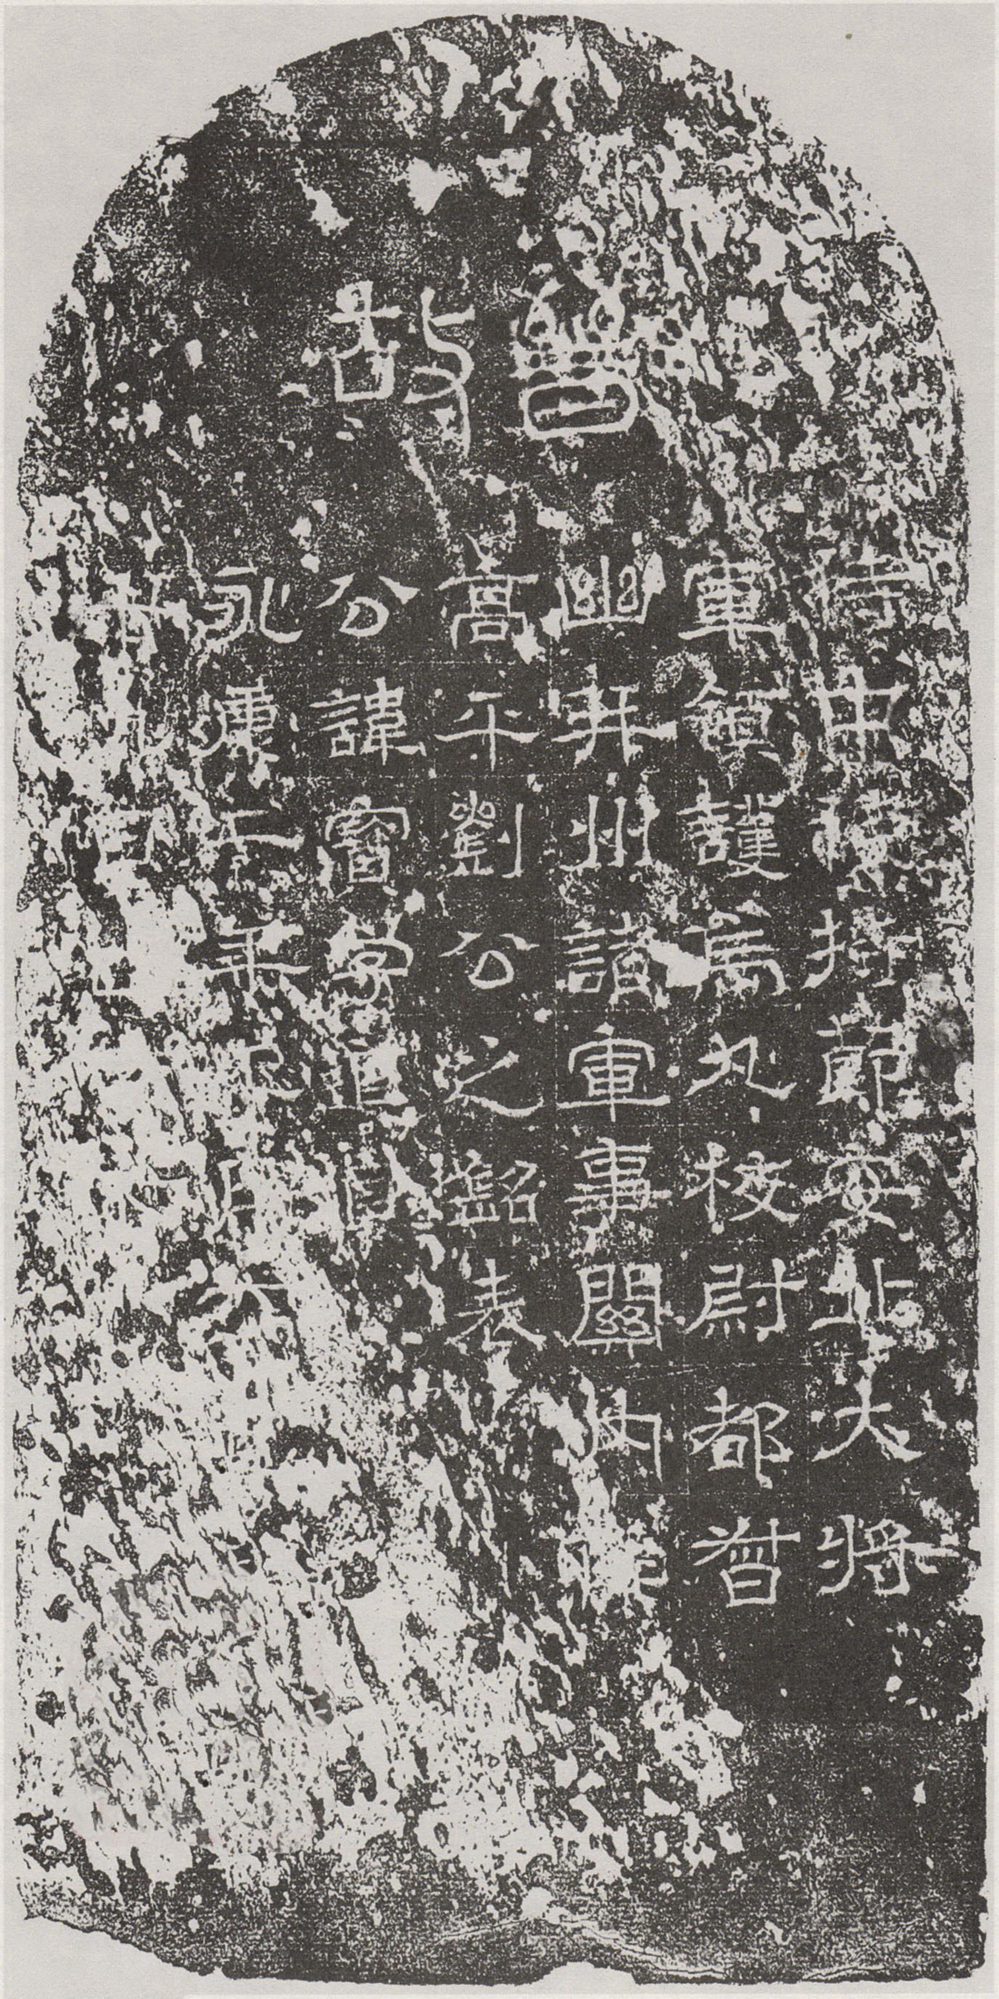 晉故
侍中使持節安北大將
軍領護烏丸校尉都督
幽并州諸軍事關內侯
高平劉公之墓表
公諱寶字道真
永康二年正月廿九日